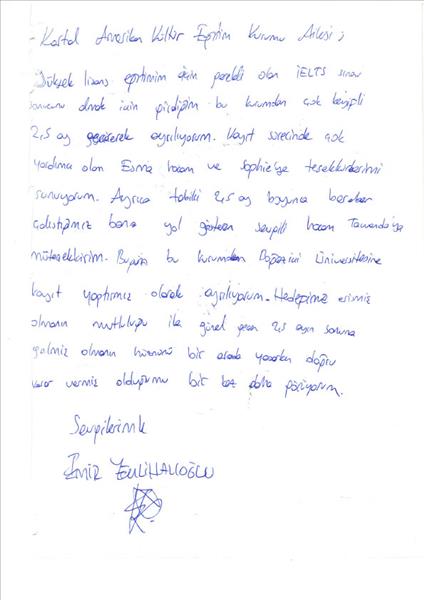 - Kartal Amerikan Kültür Eğitim Kurumu Ailesi;
Yüksek lisans eğitimim için gerekli olan IELTS sınav
sonucunu almak için girdiğim bu kurumdan çok keyifli
2,5 ay geçirerek ayrılıyorum. Kayıt sürecinde çok
yardımcı olan Esma hocam ve Sophie'ye teşekkürlerimi
sunuyorum. Ayrıca tabiki 2,5 ay boyunca beraber
çalıştığımız bana yol gösteren sevgili hocam Tawanda'ya
müteşekkirim. Bugün bu kurumdan Boğaziçi Üniversitesine
kayıt yaptırmış olarak ayrılıyorum. Hedefime erişmiş
olmanın mutluluğu ile güzel geçen 2,5 ayın sonuna
gelmiş olmanın hüznünü bir arada yaşarken doğru
karar vermiş olduğumu bir kez daha görüyorum.
Sevgilerimle
Emir ZEULİHALİOĞLU